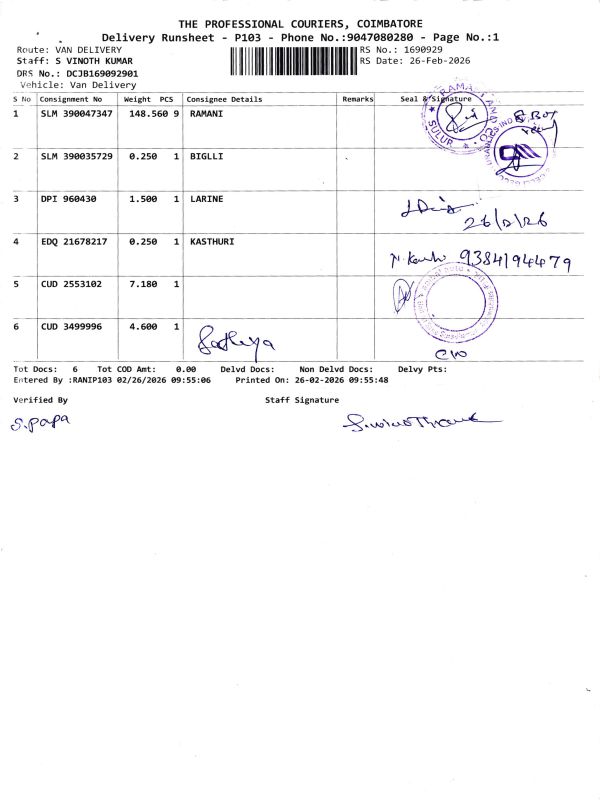 THE PROFESSIONAL COURIERS, COIMBATORE
Delivery Runsheet - P103 - Phone No.:9047080280 - Page No.:1
Route: VAN DELIVERY
RS No.: 1690929
Staff: S VINOTH KUMAR
RS Date: 26-Feb-2026
DRS No.: DCJB169092901
Vehicle: Van Delivery
S No Consignment No Weight PCS Consignee Details Remarks Seal & Signature
1 SLM 390047347 148.560 9 RAMANI
SULUR
2 SLM 390035729 0.250 1 BIGLLI
3 DPI 960430 1.500 1 LARINE
26/2/26
4 EDQ 21678217 0.250 1 KASTHURI
9384194479
5 CUD 2553102 7.180 1
6 CUD 3499996 4.600 1
Sathya
Tot Docs: 6 Tot COD Amt: 0.00 Delvd Docs: Non Delvd Docs: Delvy Pts:
Entered By :RANIP103 02/26/2026 09:55:06 Printed On: 26-02-2026 09:55:48
Verified By Staff Signature
S.papa